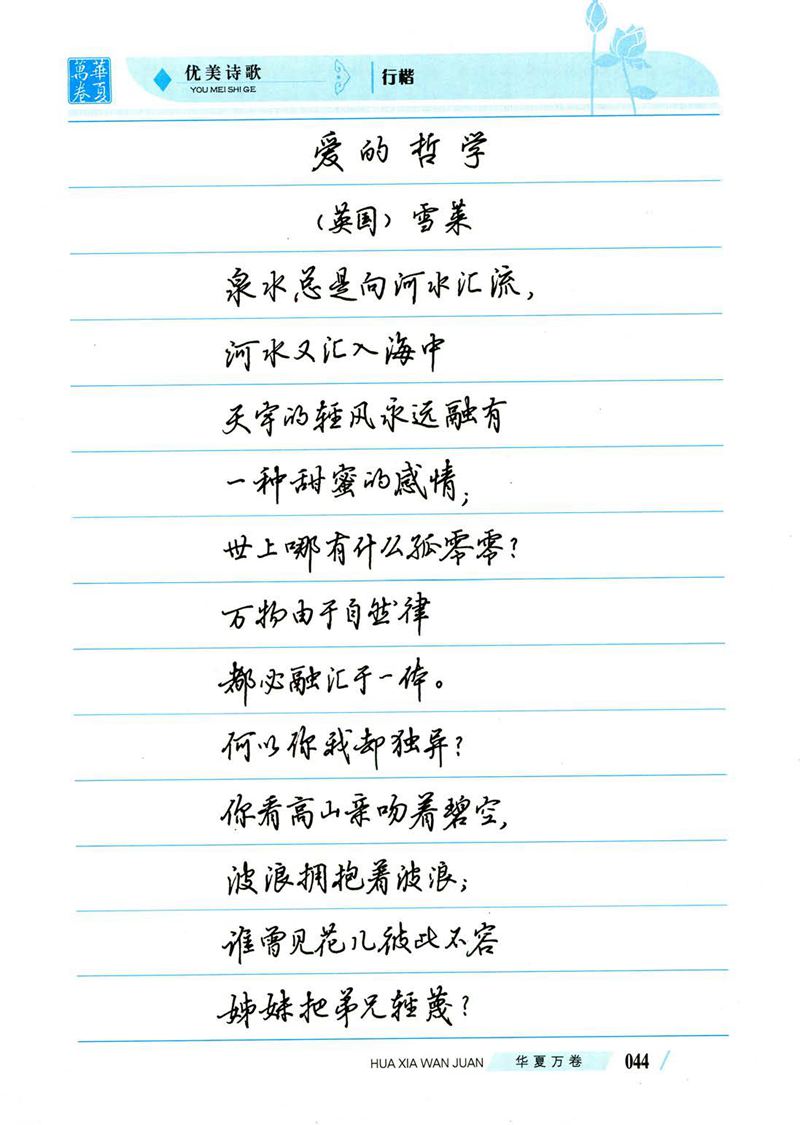 華夏
萬卷
优美诗歌
YOU MEI SHI GE
行楷
爱的哲学
(英国)雪莱
泉水总是向河水汇流,
河水又汇入海中
天宇的轻风永远融有
一种甜蜜的感情;
世上哪有什么孤零零?
万物由于自然律
都必融汇于一体。
何以你我却独异?
你看高山亲吻着碧空,
波浪拥抱着波浪;
谁曾见花儿彼此不容
姊妹把弟兄轻蔑?
HUA XIA WAN JUAN
华夏万卷
044